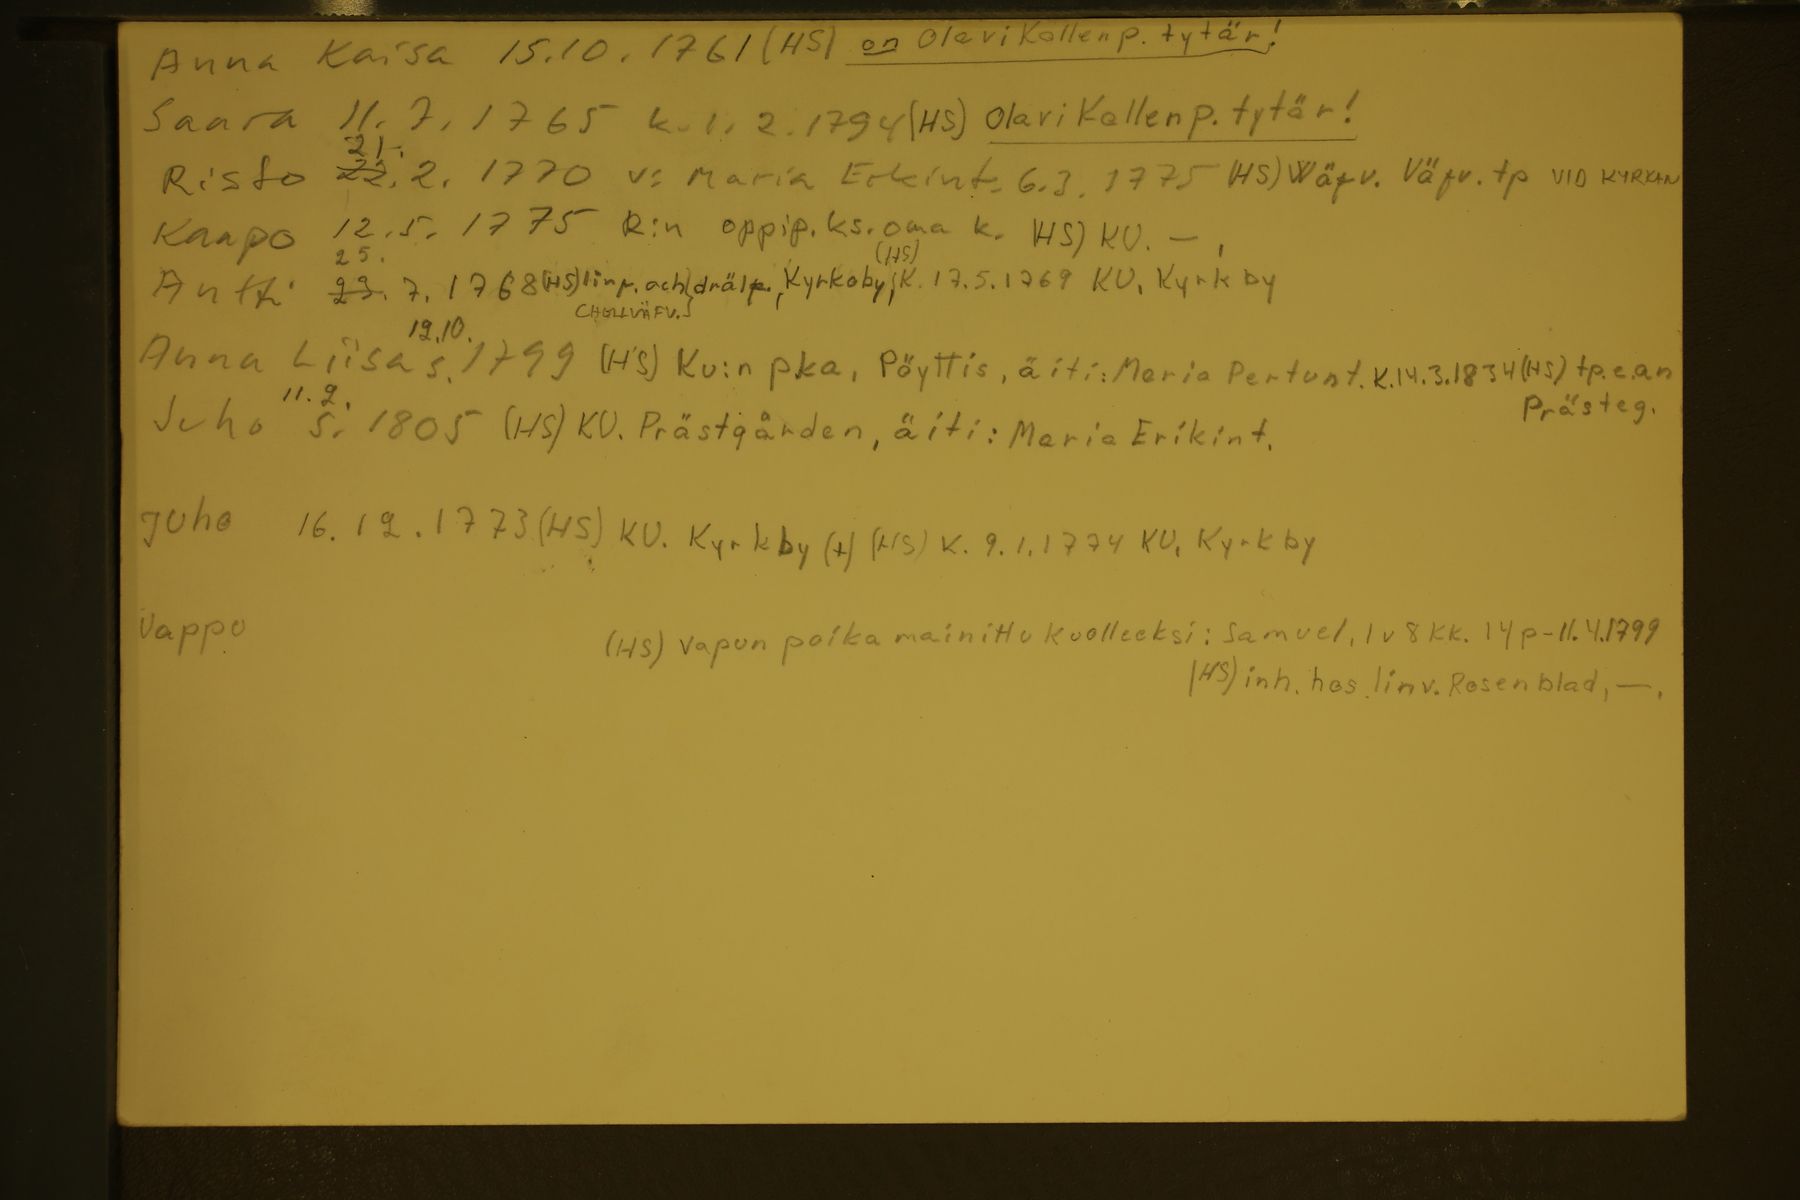 Anna Kaisa 15.10.1761 (HS) on Olavi Kallenp. tytär!
Saara 11.7.1765 k. 1.2.1794 (HS) Olavi Kallenp. tytär!
21.
Risto 22.2.1770 v: Maria Erkint. 6.3.1775 (HS) Wäfv. Väfv. tp VID KYRKAN
Kaapo 12.5.1775 R:n oppip. ks. oma k. (HS) KU. —,
25. (HS)
Antti 23.7.1768 (HS) och Kyrkoby, K. 17.5.1769 KU, Kyrkby
19.10.
Anna Liisa s. 1799 (HS) Ku:n pka, Pöyttis, äiti: Maria Pertunt. K. 14.3.1834 (HS) tp.e.an
Prästeg.
11.2.
Juho s. 1805 (HS) KU. Prästgården, äiti: Maria Erikint.
Juho 16.12.1773 (HS) KU. Kyrkby (+) (HS) K. 9.1.1774 KU, Kyrkby
Vappu (HS) Vapun poika mainittu kuolleeksi: Samuel, 1 v 8 kk. 14 p - 11.4.1799
(HS) inh. hos linv. Rosenblad, —.